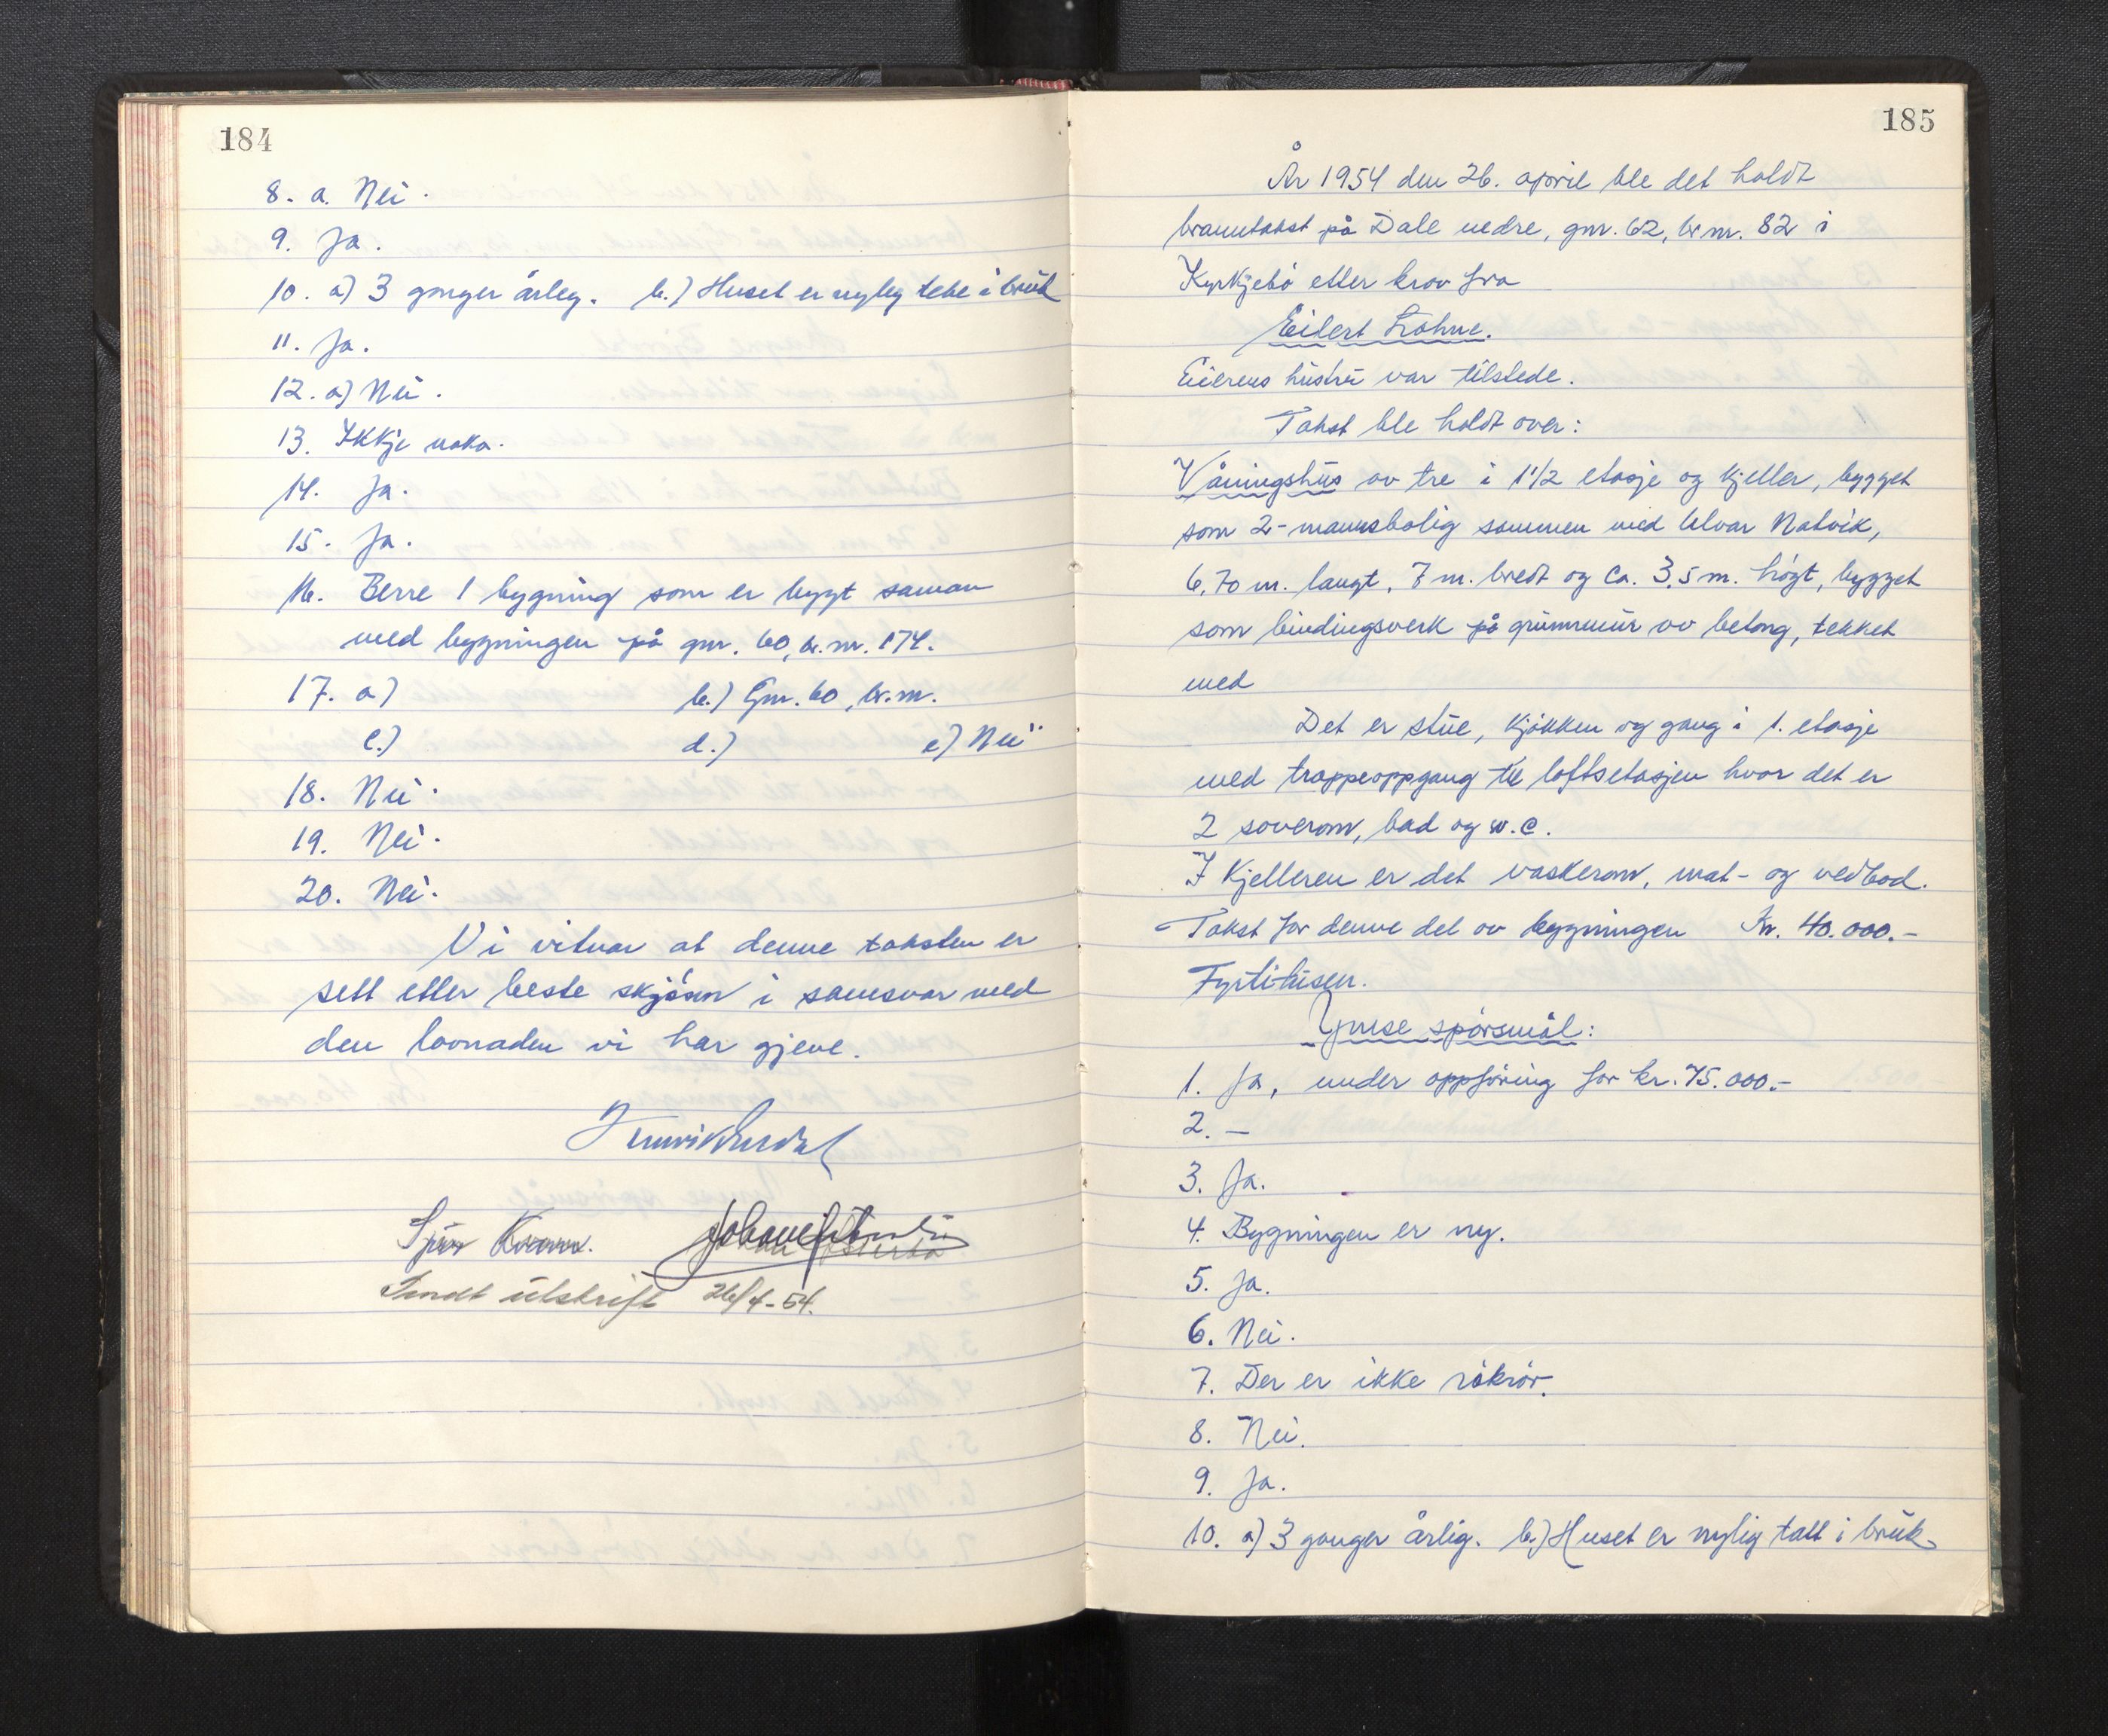 184
8. a. Nei.
9. Ja.
10. a) 3 ganger årleg. b.) Huset er nyleg teke i bruk
11. Ja.
12. a) Nei.
13. Ikkje noko.
14. Ja.
15. Ja.
16. Berre 1 bygning som er bygt saman
med bygningen på gnr. 60, br. nr. 174.
17. a) b.) Gnr. 60, br. nr.
c.) d.) e) Nei
18. Nei.
19. Nei.
20. Nei.
Vi vitnar at denne taksten er
sett etter beste skjösn i samsvar med
den lovnaden vi har gjeve.
Kvamm.
Sendt utskrift 26/4-54.
185
År 1954 den 26. april ble det holdt
branntakst på Dale nedre, gnr. 62, br nr. 82 i
Kyrkjebö etter krav fra
Eilert Lohne.
Eierens hustru var tilstede.
Takst ble holdt over:
Våningshus av tre i 1 1/2 etasje og kjeller, bygget
som 2-mannsbolig sammen med Natvik,
6,70 m. langt, 7 m. bredt og ca. 3,5 m. högt, bygget
som bindingsverk på grunnmur av betong, tekket
med
Det er stue, kjökken og gang i 1. etasje
med trappeoppgang til loftsetasjen hvor det er
2 soverom, bad og w.c.
I kjelleren er det vaskerom, mat- og vedbod.
Takst for denne del av bygningen Kr. 40.000.-
Fyrtitusen.
Ymse spörsmål:
1. Ja, under oppföring for kr. 75.000.-
2. —
3. Ja.
4. Bygningen er ny.
5. Ja.
6. Nei.
7. Der er ikke rökrör.
8. Nei.
9. Ja.
10. a) 3 ganger årlig. b.) Huset er nylig tatt i bruk